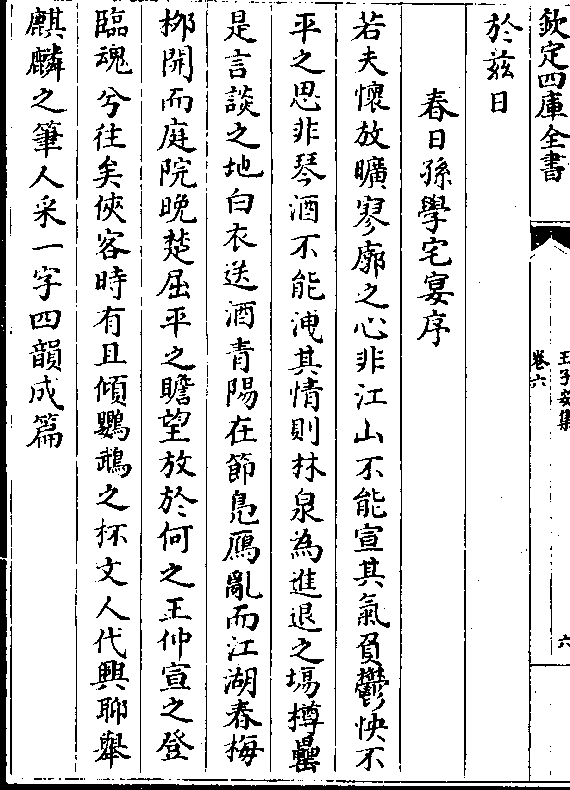 欽定四庫全書
王子安集
卷六
六
於兹日
春日孫學宅宴序
若夫懷放曠寥廓之心非江山不能宣其氣負鬱怏不
平之思非琴酒不能洩其情則林泉為進退之塲樽罍
是言談之地白衣送酒青陽在節鳧鴈亂而江湖春梅
栁開而庭院晚楚屈平之瞻望放於何之王仲宣之登
臨魂兮往矣俠客時有且傾鸚鵡之杯文人代興聊舉
麒麟之筆人采一字四韻成篇